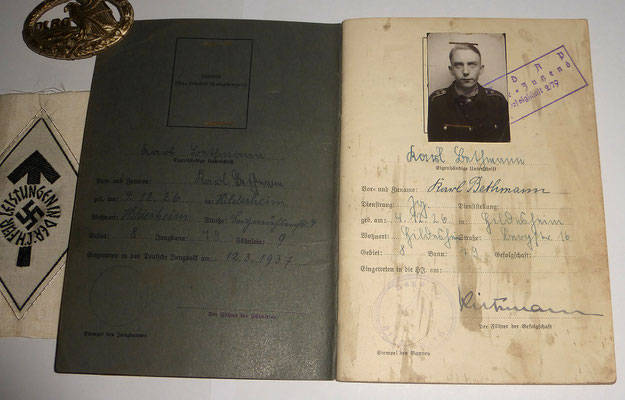 FÜR LEISTUNGEN IN DER HJ
Lichtbild
Karl Bethmann
Eigenhändige Unterschrift
Vor- und Zuname: Karl Bethmann
geb. am: 4.12.26 in Hildesheim
Wohnort: Hildesheim Straße:
Gebiet: 8 Jungbann: 79 Fähnlein: 9
Eingetreten in das Deutsche Jungvolk am: 12.3.1937
Der Führer des Fähnleins
Stempel des Jungbannes
Karl Bethmann
Eigenhändige Unterschrift
Vor- und Zuname: Karl Bethmann
Dienstrang: Jg. Dienststellung:
geb. am: 4.12.26 in Hildesheim
Wohnort Straße: Bergstr. 16
Gebiet: 8 Bann 79 Gefolgschaft:
Eingetreten in die HJ. am:
Der Führer der Gefolgschaft
Stempel des Bannes